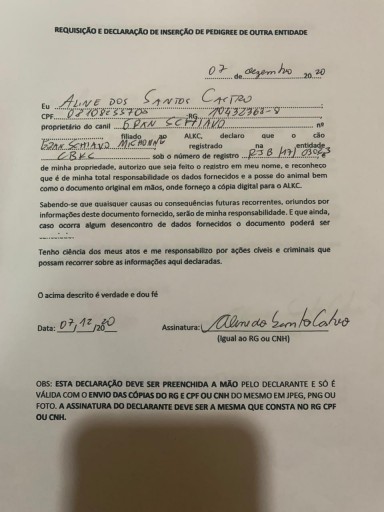 REQUISIÇÃO E DECLARAÇÃO DE INSERÇÃO DE PEDIGREE DE OUTRA ENTIDADE
07 de dezembro 20 20
Eu ALINE DOS SANTOS CASTRO
CPF RG
proprietário do canil GRAN SCHIAVO nº
filiado ao ALKC, declaro que o cão
GRAN SCHIAVO registrado na entidade
CBKC sob o número de registro
de minha propriedade, autorizo que seja feito o registro em meu nome, e reconheço
que é de minha total responsabilidade os dados fornecidos e a posse do animal bem
como o documento original em mãos, onde forneço a cópia digital para o ALKC.
Sabendo-se que quaisquer causas ou consequências futuras recorrentes, oriundos por
informações deste documento fornecido, serão de minha responsabilidade. E que ainda,
caso ocorra algum desencontro de dados fornecidos o documento poderá ser
Tenho ciência dos meus atos e me responsabilizo por ações cíveis e criminais que
possam recorrer sobre as informações aqui declaradas.
O acima descrito é verdade e dou fé
Data: 07/12/2020 Assinatura:
(Igual ao RG ou CNH)
OBS: ESTA DECLARAÇÃO DEVE SER PREENCHIDA A MÃO PELO DECLARANTE E SÓ É
VÁLIDA COM O ENVIO DAS CÓPIAS DO RG E CPF OU CNH DO MESMO EM JPEG, PNG OU
FOTO. A ASSINATURA DO DECLARANTE DEVE SER A MESMA QUE CONSTA NO RG CPF
OU CNH.